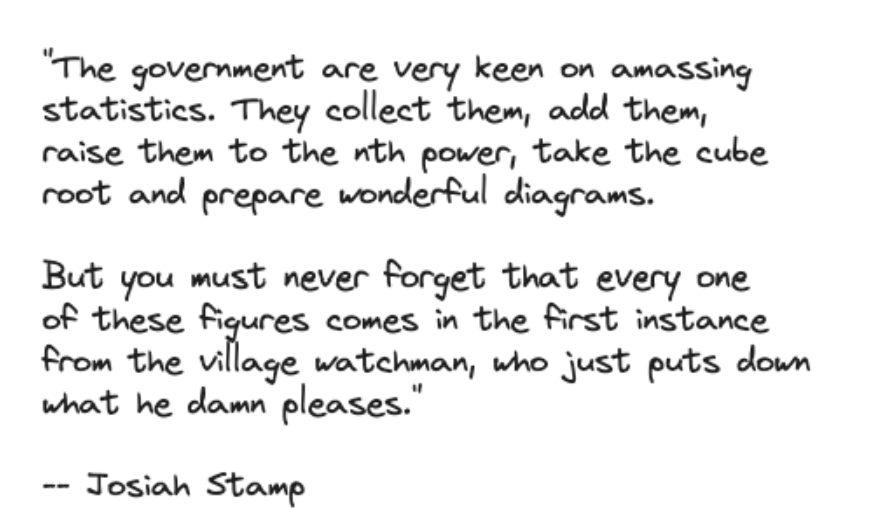 "The government are very keen on amassing
statistics. They collect them, add them,
raise them to the nth power, take the cube
root and prepare wonderful diagrams.
But you must never forget that every one
of these figures comes in the first instance
from the village watchman, who just puts down
what he damn pleases."
-- Josiah Stamp